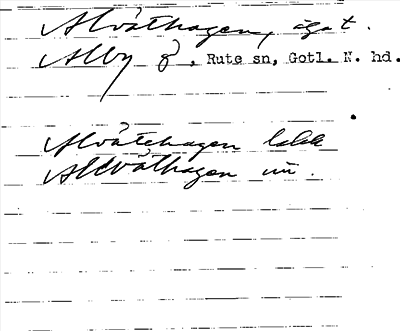 Alväthagen, ägot.
Alby g, Rute sn, Gotl. N. hd.
Alvätehagen lokk
Alväthagen nu.